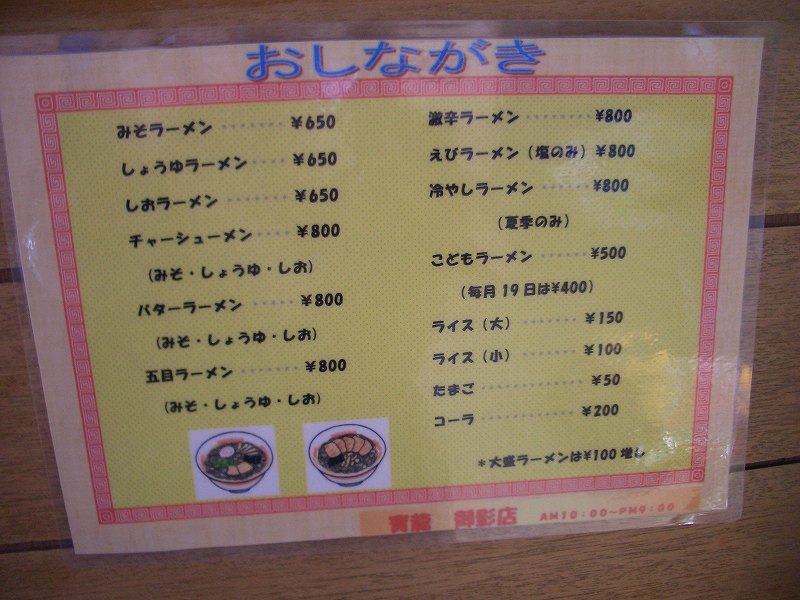 おしながき
みそラーメン ········ ¥650
しょうゆラーメン ···· ¥650
しおラーメン ········ ¥650
チャーシューメン ···· ¥800
(みそ・しょうゆ・しお)
バターラーメン ····· ¥800
(みそ・しょうゆ・しお)
五目ラーメン ······· ¥800
(みそ・しょうゆ・しお)
激辛ラーメン ········ ¥800
えびラーメン(塩のみ) ¥800
冷やしラーメン ······ ¥800
(夏季のみ)
こどもラーメン ······ ¥500
(毎月19日は¥400)
ライス(大) ······· ¥150
ライス(小) ······· ¥100
たまご ············· ¥50
コーラ ············ ¥200
*大盛ラーメンは¥100増し
御影店 AM10:00~PM9:00